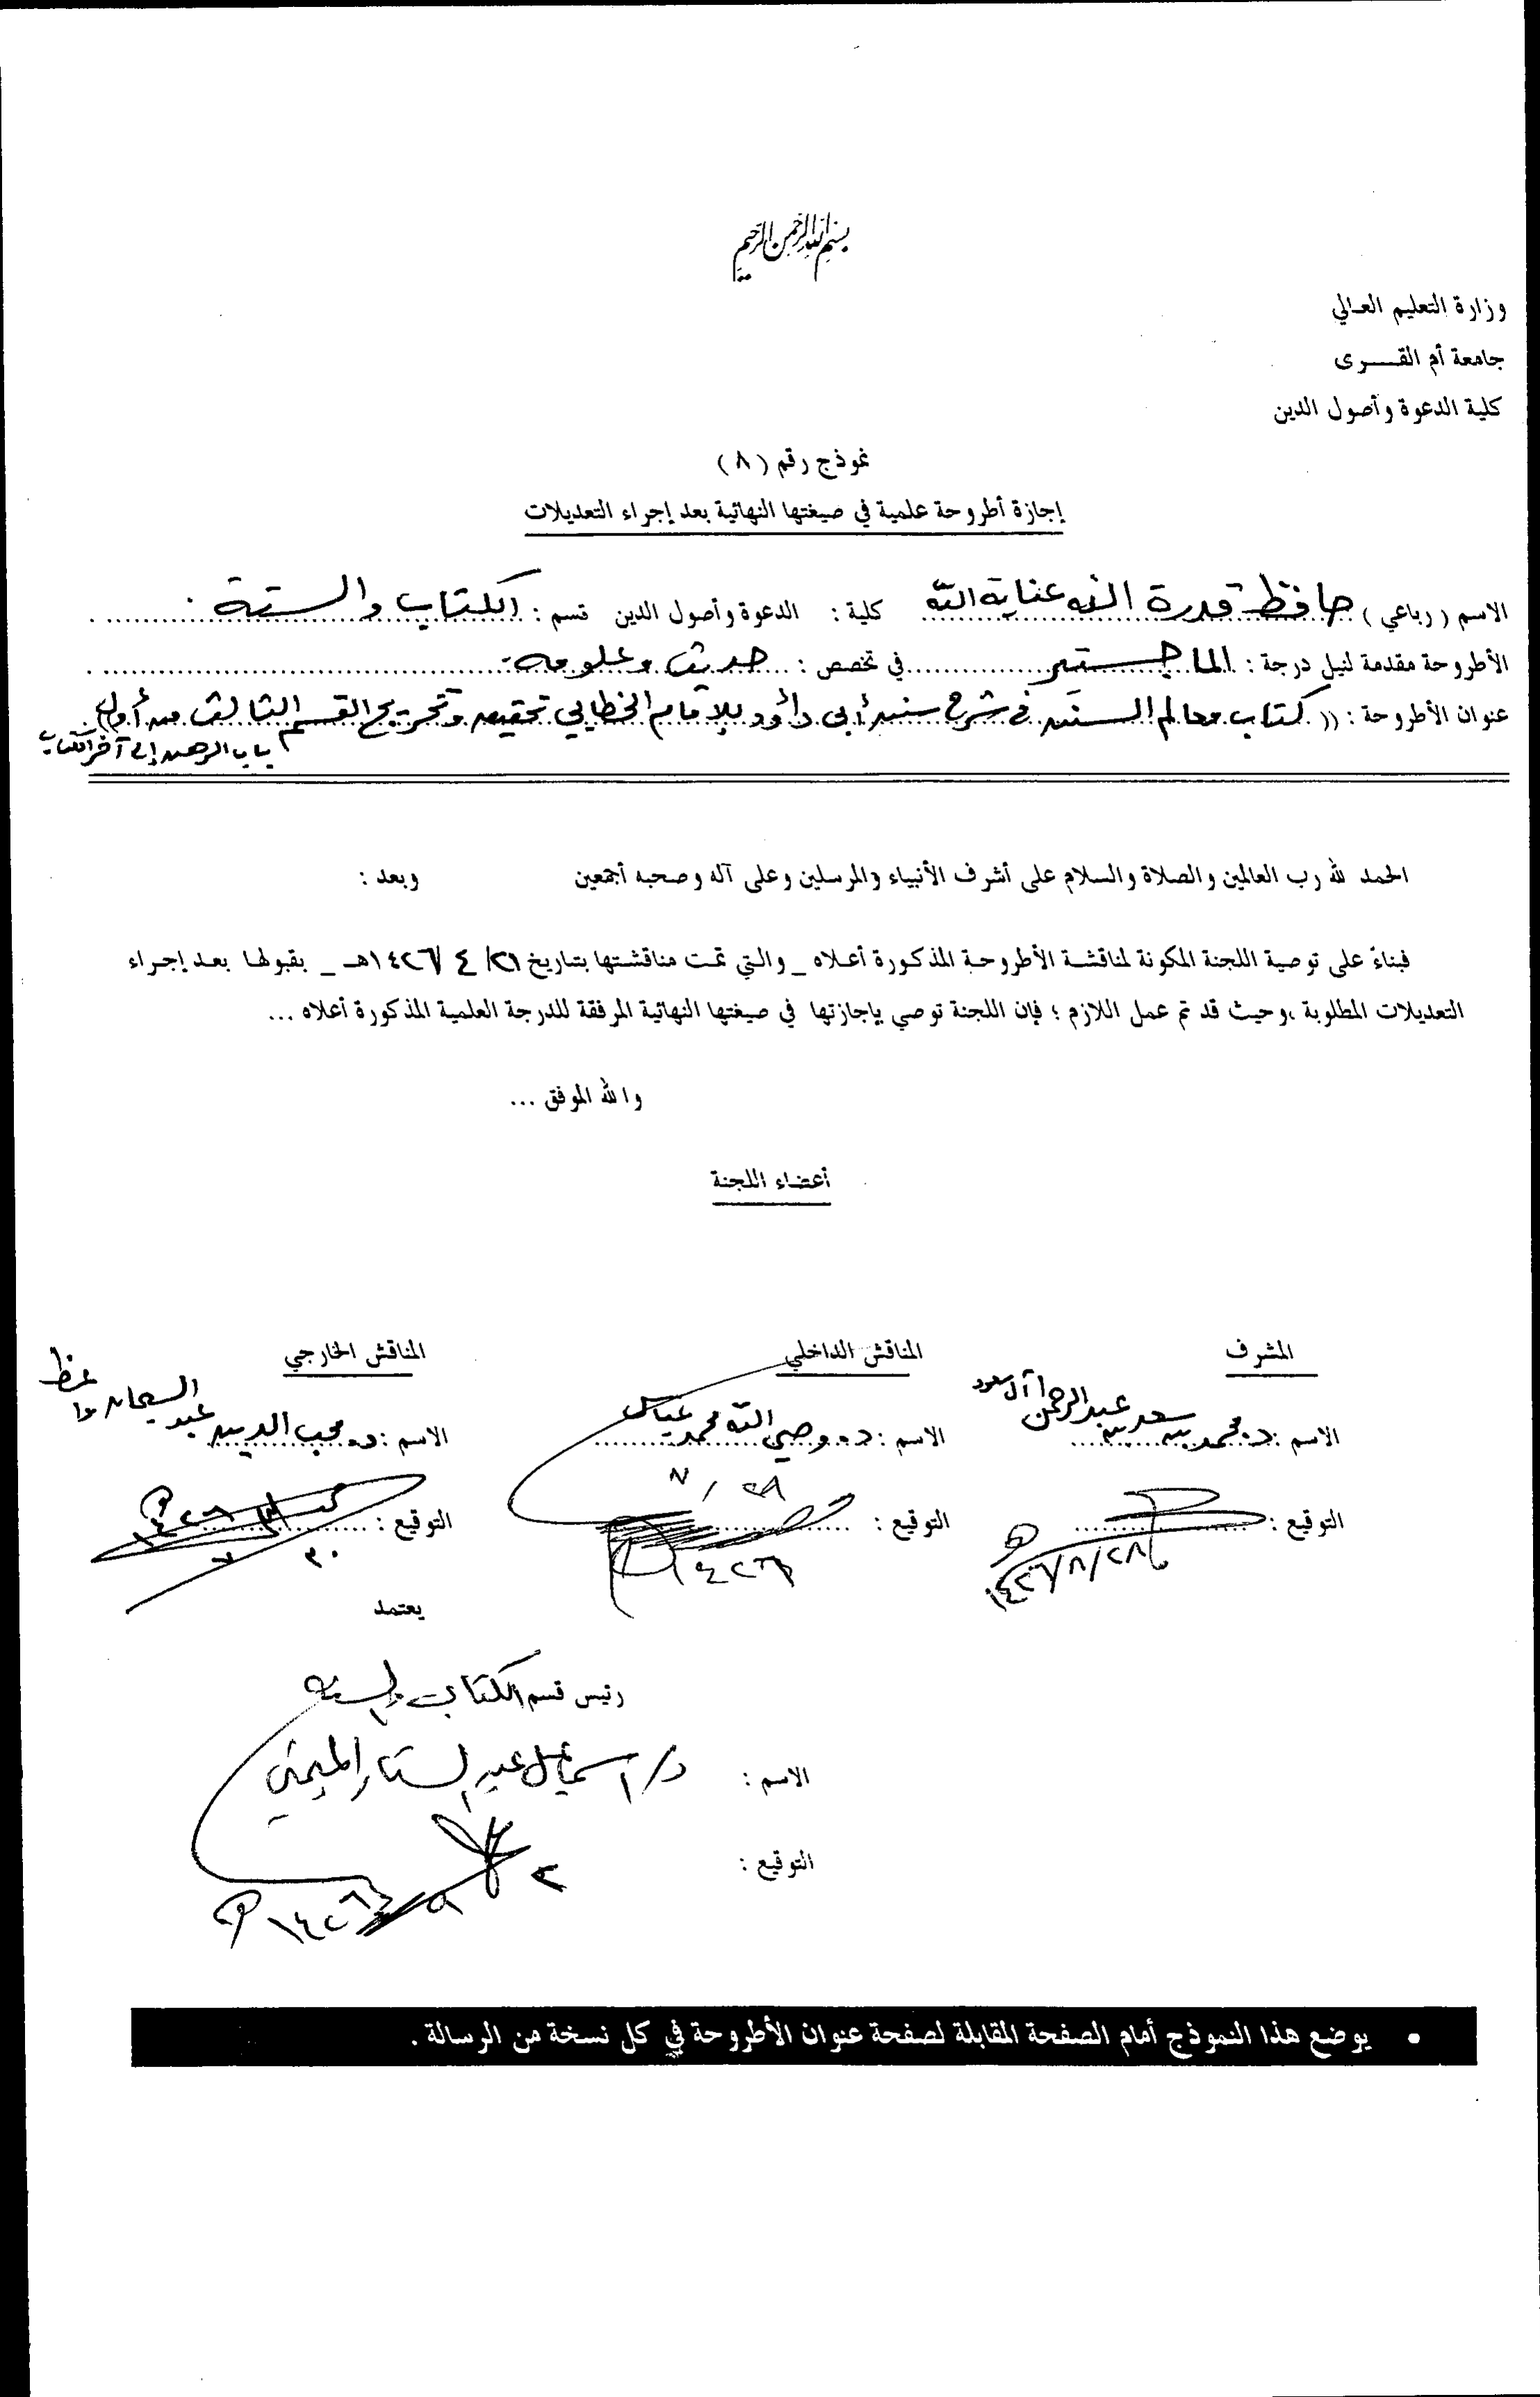 بسم الله الرحمن الرحيم
وزارة التعليم العالي
جامعة أم القرى
كلية الدعوة وأصول الدين
نموذج رقم (٨)
إجازة أطروحة علمية في صيغتها النهائية بعد إجراء التعديلات
الاسم (رباعي) حافظ قدرة الله عناية الله كلية : الدعوة وأصول الدين قسم : الكتاب والسنة
الأطروحة مقدمة لنيل درجة : الماجستير في تخصص : حديث وعلومه
عنوان الأطروحة : (( كتاب معالم السنن في شرح سنن أبي داؤد للإمام الخطابي تحقيق وتخريج القسم الثالث من أول
باب الرهن إلى آخر الكتاب ))
الحمد لله رب العالمين والصلاة والسلام على أشرف الأنبياء والمرسلين وعلى آله وصحبه أجمعين وبعد :
فبناءً على توصية اللجنة المكونة لمناقشة الأطروحة المذكورة أعلاه _ والتي تمت مناقشتها بتاريخ ٢١/ ٤ /١٤٢٦هـ _ بقبولها بعد إجراء
التعديلات المطلوبة ،وحيث قد تم عمل اللازم ؛ فإن اللجنة توصي بإجازتها في صيغتها النهائية المرفقة للدرجة العلمية المذكورة أعلاه ...
والله الموفق ...
أعضاء اللجنة
المشرف المناقش الداخلي المناقش الخارجي
الاسم : د. محمد بن سعد بن عبد الرحمن آل سعود الاسم : د. وصي الله محمد عباس الاسم : د. محب الدين عبد السبحان واعظ
التوقيع : ١٤٢٦/٨/٢٨ التوقيع : ٢٨ / ٧ ١٤٢٦ التوقيع :
يعتمد
رئيس قسم الكتاب والسنة
الاسم : د/ اسماعيل عبد الستار الميمني
التوقيع :
• يوضع هذا النموذج أمام الصفحة المقابلة لصفحة عنوان الأطروحة في كل نسخة من الرسالة .